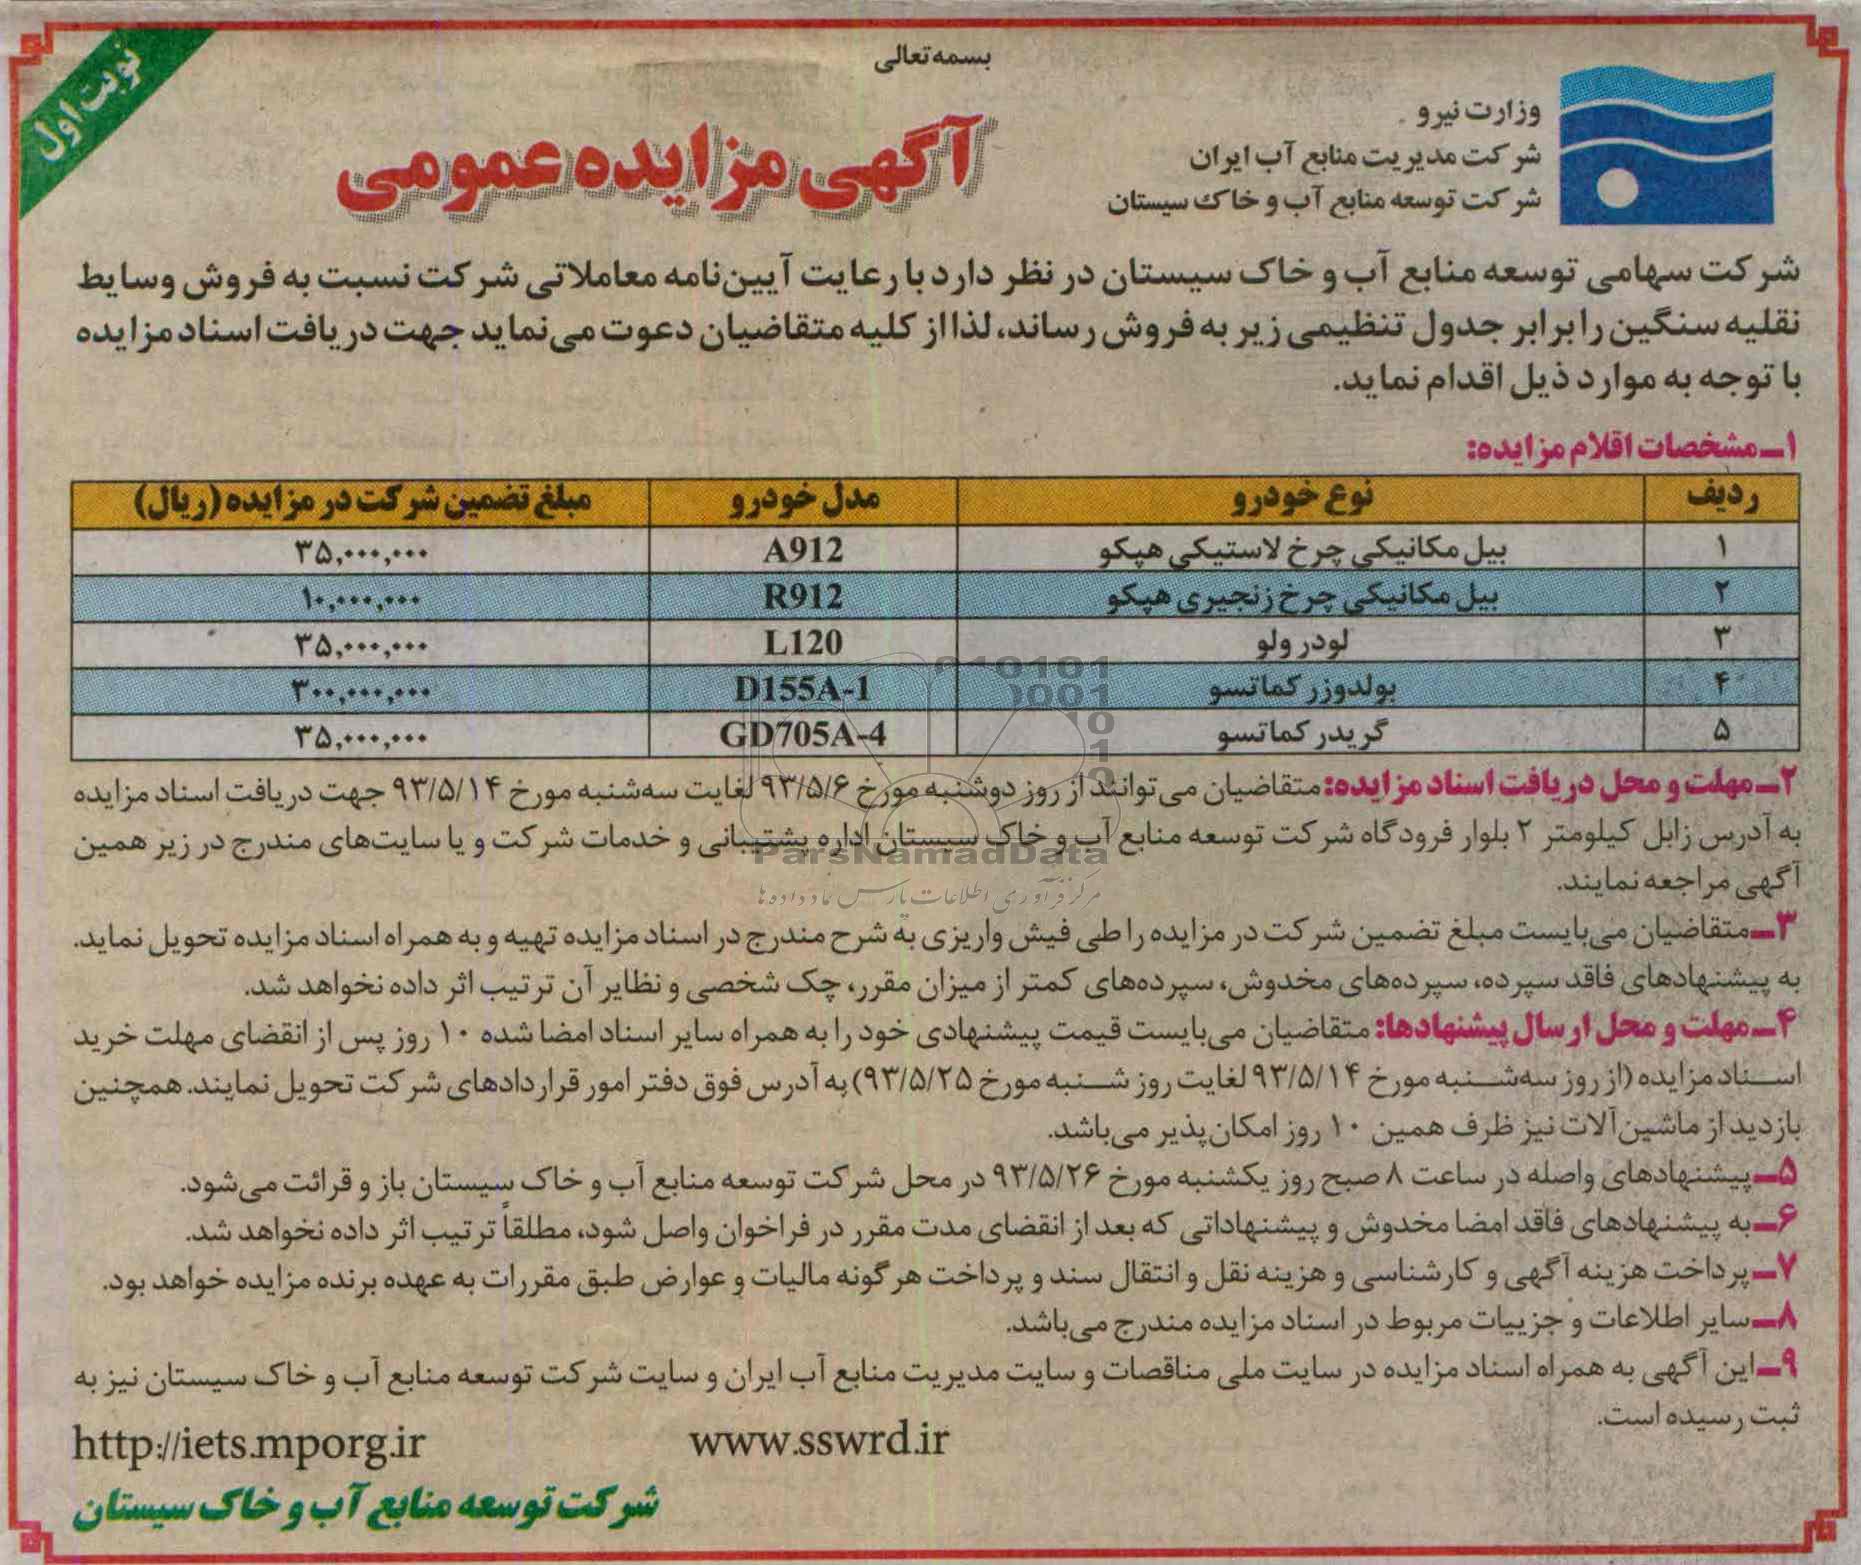 بسمه تعالی
نوبت اول
وزارت نیرو
شرکت مدیریت منابع آب ایران
شرکت توسعه منابع آب و خاک سیستان
آگهی مزایده عمومی
شرکت سهامی توسعه منابع آب و خاک سیستان در نظر دارد با رعایت آیین‌نامه معاملاتی شرکت نسبت به فروش وسایط
نقلیه سنگین را برابر جدول تنظیمی زیر به فروش رساند، لذا از کلیه متقاضیان دعوت می‌نماید جهت دریافت اسناد مزایده
با توجه به موارد ذیل اقدام نماید.
۱ـ مشخصات اقلام مزایده:
ردیف نوع خودرو مدل خودرو مبلغ تضمین شرکت در مزایده (ریال)
۱ بیل مکانیکی چرخ لاستیکی هپکو A912 ۳۵,۰۰۰,۰۰۰
۲ بیل مکانیکی چرخ زنجیری هپکو R912 ۱۰,۰۰۰,۰۰۰
۳ لودر ولو L120 ۳۵,۰۰۰,۰۰۰
۴ بولدوزر کماتسو D155A-1 ۳۰۰,۰۰۰,۰۰۰
۵ گریدر کماتسو GD705A-4 ۳۵,۰۰۰,۰۰۰
۲ـ مهلت و محل دریافت اسناد مزایده: متقاضیان می‌توانند از روز دوشنبه مورخ ۹۳/۵/۶ لغایت سه‌شنبه مورخ ۹۳/۵/۱۴ جهت دریافت اسناد مزایده
به آدرس زابل کیلومتر ۲ بلوار فرودگاه شرکت توسعه منابع آب و خاک سیستان اداره پشتیبانی و خدمات شرکت و یا سایت‌های مندرج در زیر همین
آگهی مراجعه نمایند.
۳ـ متقاضیان می‌بایست مبلغ تضمین شرکت در مزایده را طی فیش واریزی به شرح مندرج در اسناد مزایده تهیه و به همراه اسناد مزایده تحویل نماید.
به پیشنهادهای فاقد سپرده، سپرده‌های مخدوش، سپرده‌های کمتر از میزان مقرر، چک شخصی و نظایر آن ترتیب اثر داده نخواهد شد.
۴ـ مهلت و محل ارسال پیشنهادها: متقاضیان می‌بایست قیمت پیشنهادی خود را به همراه سایر اسناد امضا شده ۱۰ روز پس از انقضای مهلت خرید
اسناد مزایده (از روز سه‌شنبه مورخ ۹۳/۵/۱۴ لغایت روز شنبه مورخ ۹۳/۵/۲۵) به آدرس فوق دفتر امور قراردادهای شرکت تحویل نمایند. همچنین
بازدید از ماشین‌آلات نیز ظرف همین ۱۰ روز امکان‌پذیر می‌باشد.
۵ـ پیشنهادهای واصله در ساعت ۸ صبح روز یکشنبه مورخ ۹۳/۵/۲۶ در محل شرکت توسعه منابع آب و خاک سیستان باز و قرائت می‌شود.
۶ـ به پیشنهادهای فاقد امضا مخدوش و پیشنهاداتی که بعد از انقضای مدت مقرر در فراخوان واصل شود، مطلقاً ترتیب اثر داده نخواهد شد.
۷ـ پرداخت هزینه آگهی و کارشناسی و هزینه نقل و انتقال سند و پرداخت هر گونه مالیات و عوارض طبق مقررات به عهده برنده مزایده خواهد بود.
۸ـ سایر اطلاعات و جزییات مربوط در اسناد مزایده مندرج می‌باشد.
۹ـ این آگهی به همراه اسناد مزایده در سایت ملی مناقصات و سایت مدیریت منابع آب ایران و سایت شرکت توسعه منابع آب و خاک سیستان نیز به
ثبت رسیده است.
www.sswrd.ir
http://iets.mporg.ir
شرکت توسعه منابع آب و خاک سیستان
ParsNamadData
مرکز فرآوری اطلاعات پارس نماد داده ها